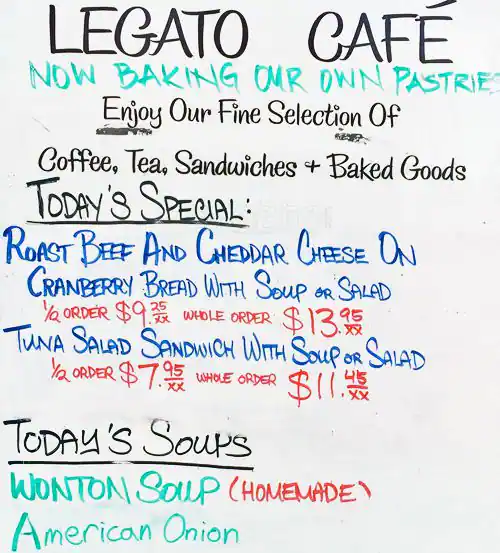 LEGATO CAFÉ
NOW BAKING OUR OWN PASTRIES
Enjoy Our Fine Selection Of
Coffee, Tea, Sandwiches + Baked Goods
TODAY'S SPECIAL:
ROAST BEEF AND CHEDDAR CHEESE ON
CRANBERRY BREAD WITH SOUP OR SALAD
1/2 ORDER $9.25/xx WHOLE ORDER $13.95/xx
TUNA SALAD SANDWICH WITH SOUP OR SALAD
1/2 ORDER $7.95/xx WHOLE ORDER $11.45/xx
TODAY'S SOUPS
WONTON SOUP (HOMEMADE)
American Onion